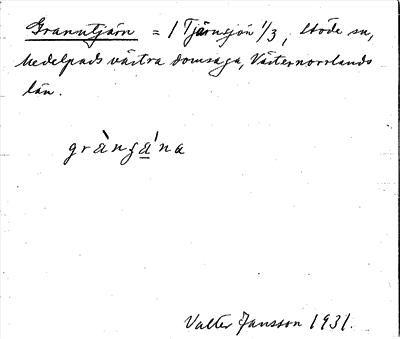 Granntjärn = 1 Tjärnsjön 1/3, Stöde sn,
Medelpads västra domsaga, Västernorrlands
län.
gràngána
Valter Jansson 1931.